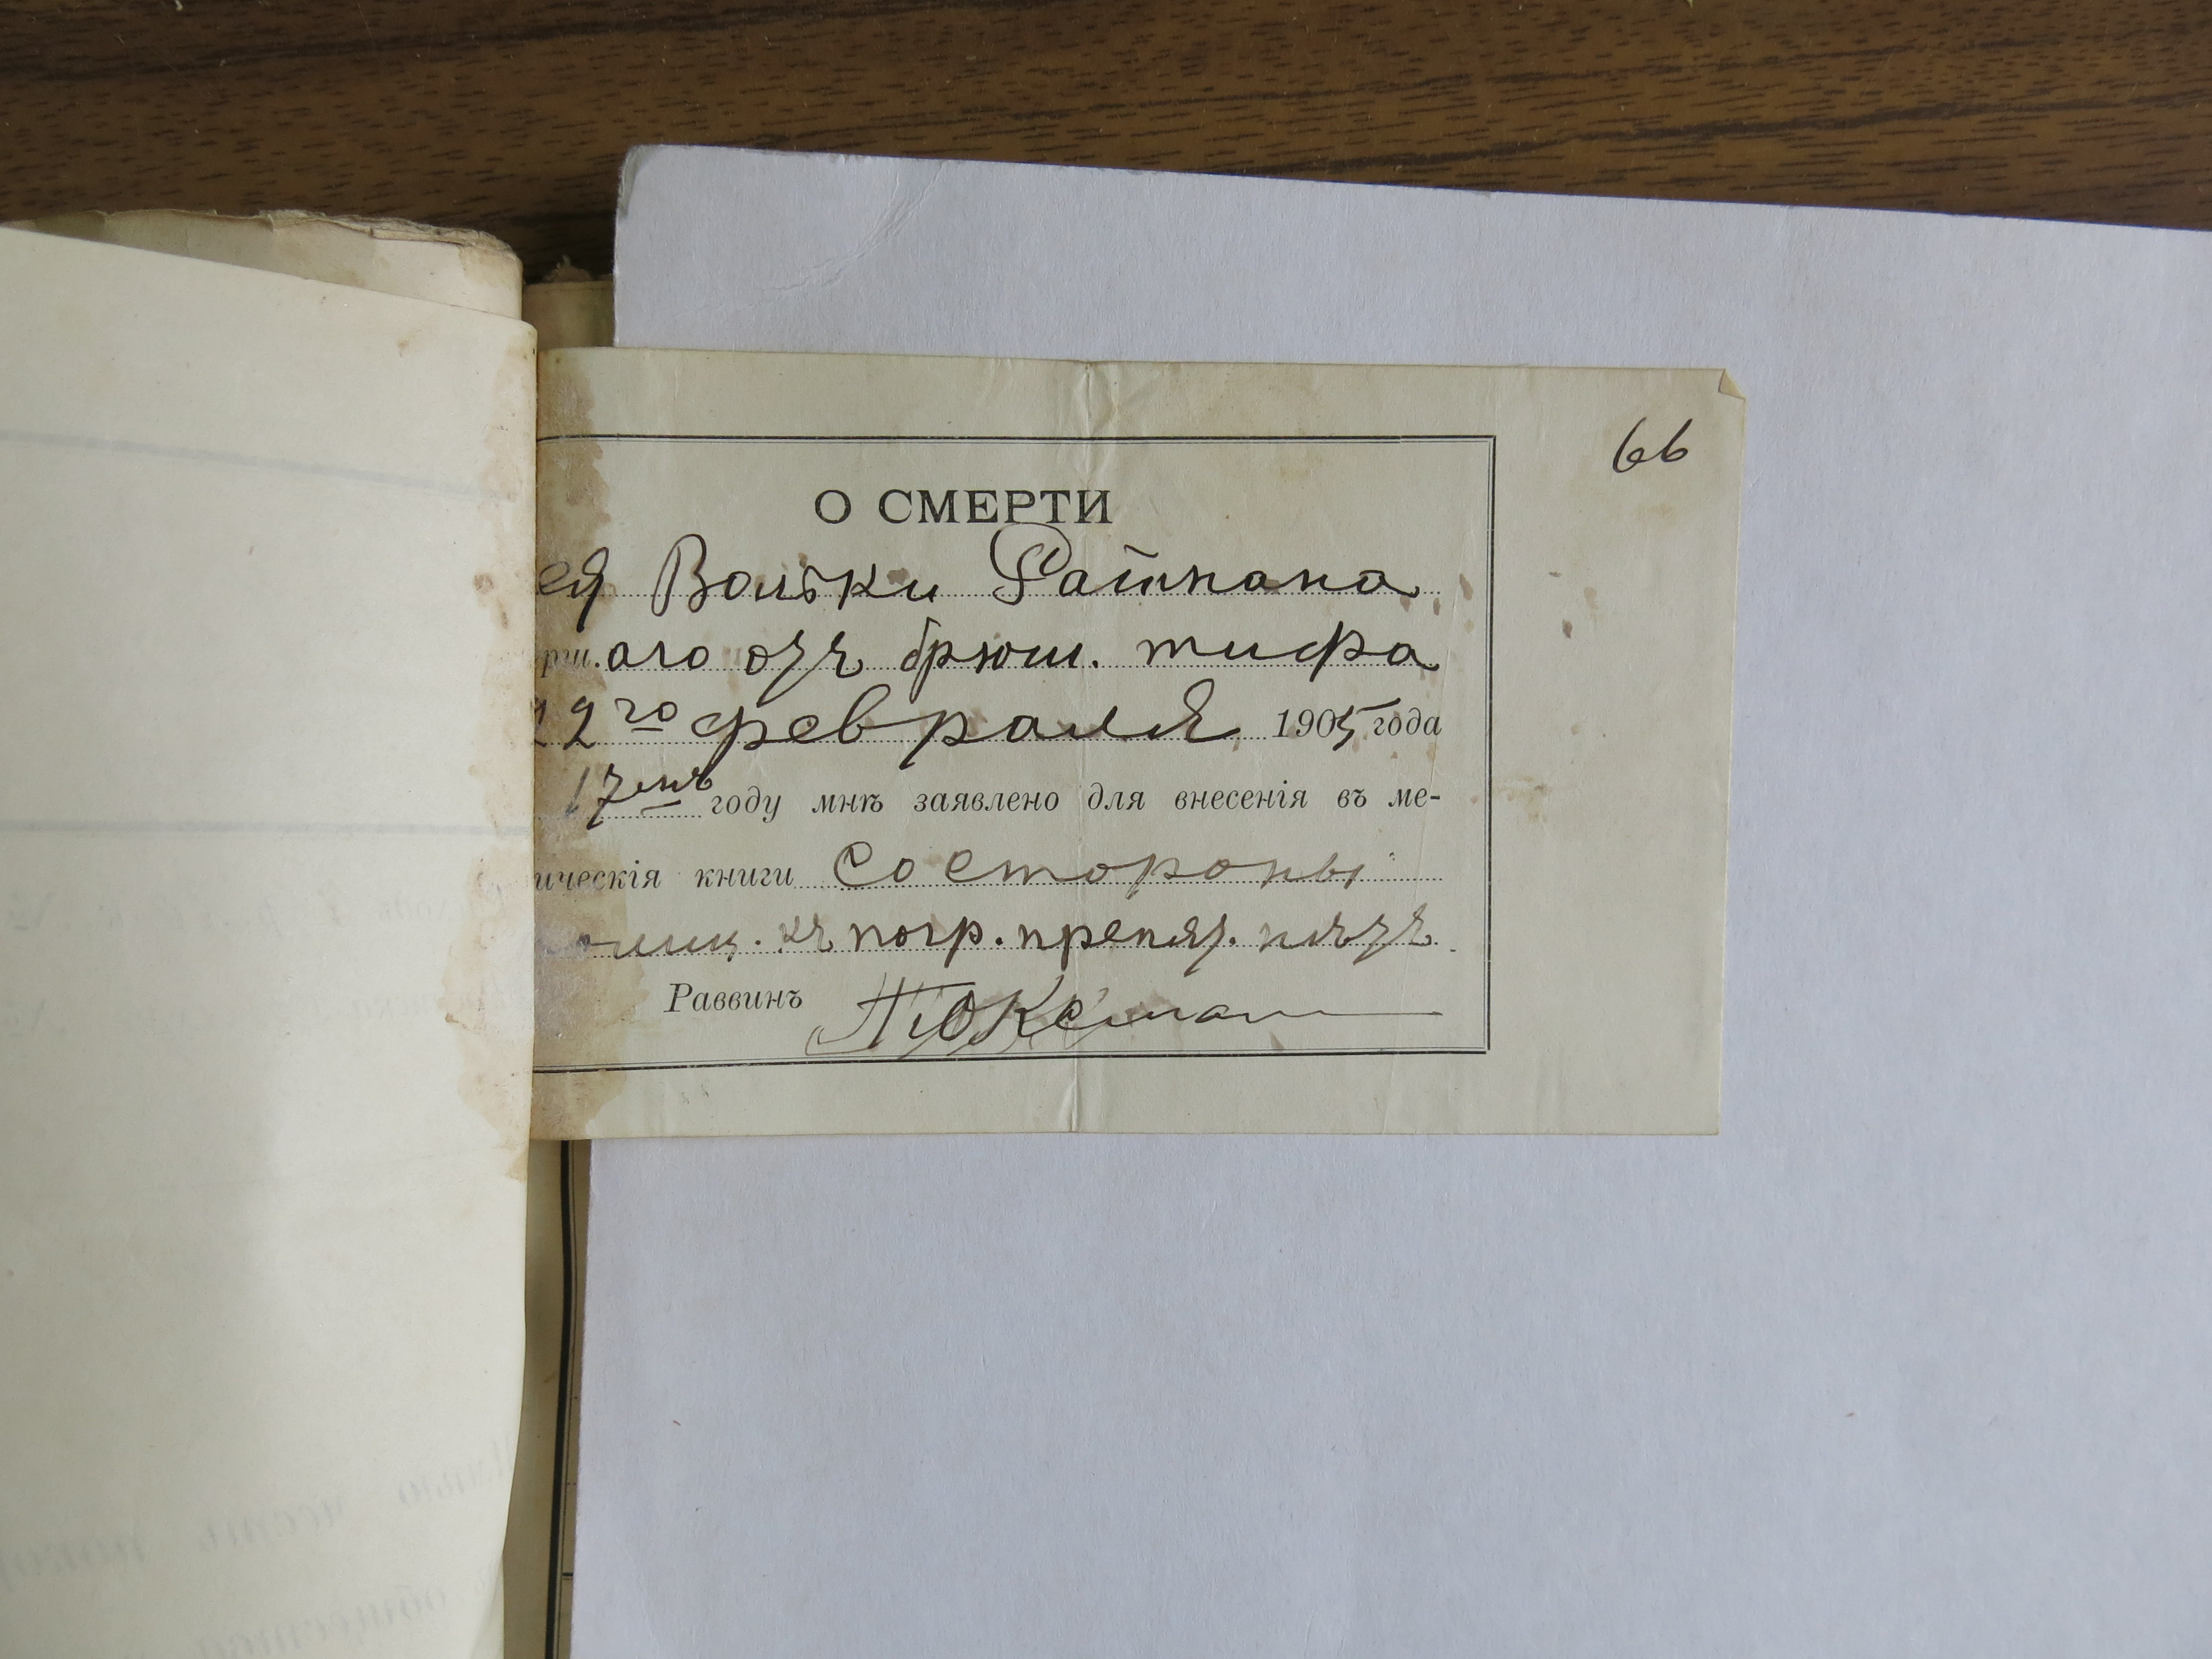 66
О СМЕРТИ
ея Вольки Ратнана
рш. аго отъ брюш. тифа
22го февраля 1905 года
17емъ году мнѣ заявлено для внесенія въ ме-
ическія книги Со стороны
олиц. къ погр. препят. нѣтъ
Раввинъ